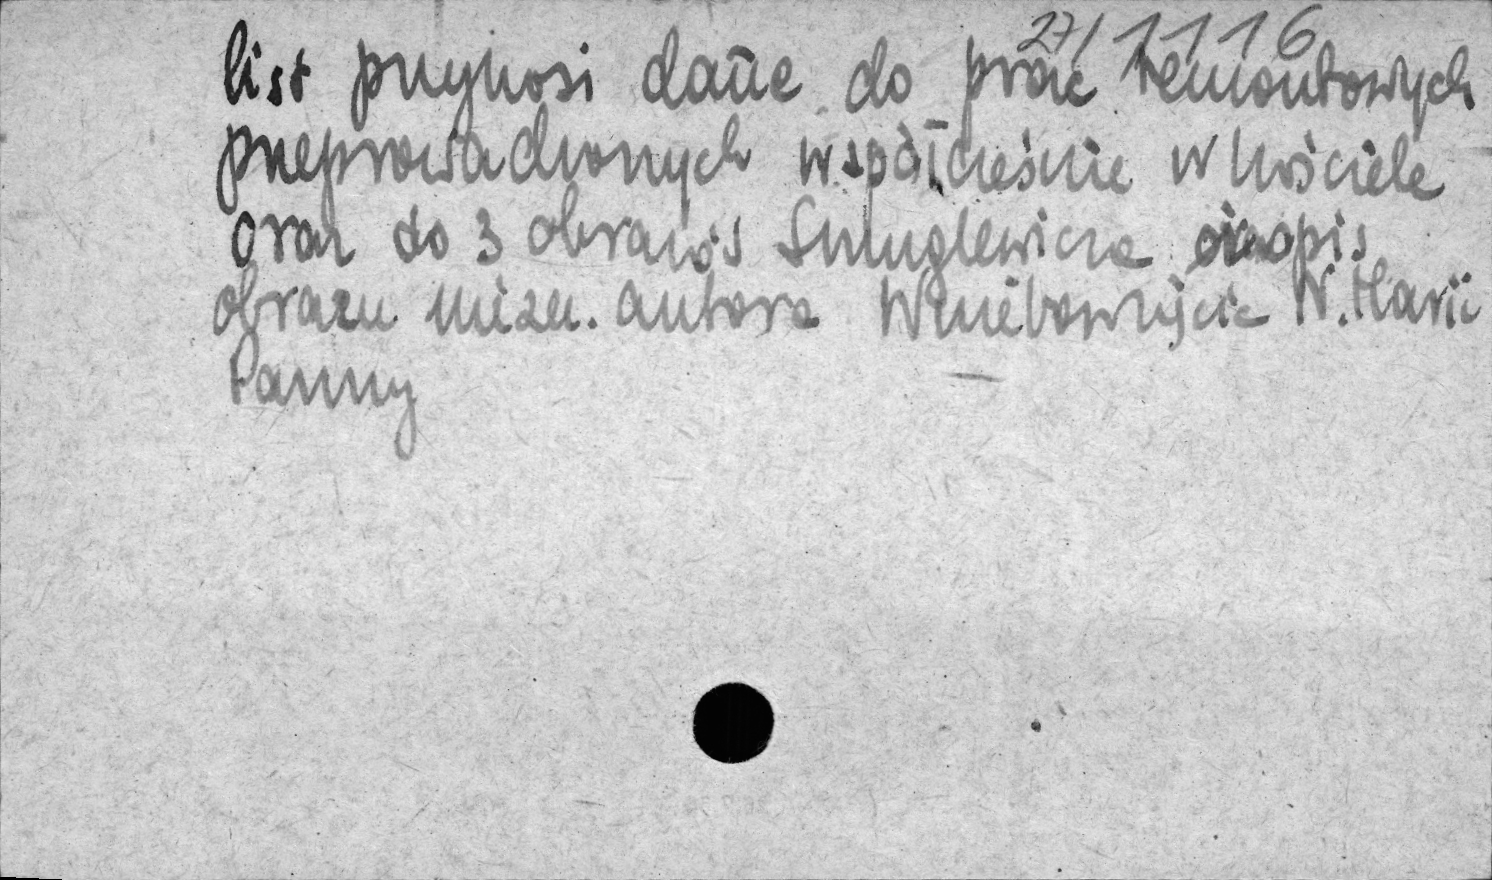 27/1116
list przynosi dane do prac remontowych
przeprowadzonych współcześnie w kościele
oraz do 3 obrazów Smuglewicza opis
obrazu niezn. autora Wniebowzięcie N. Marii
Panny